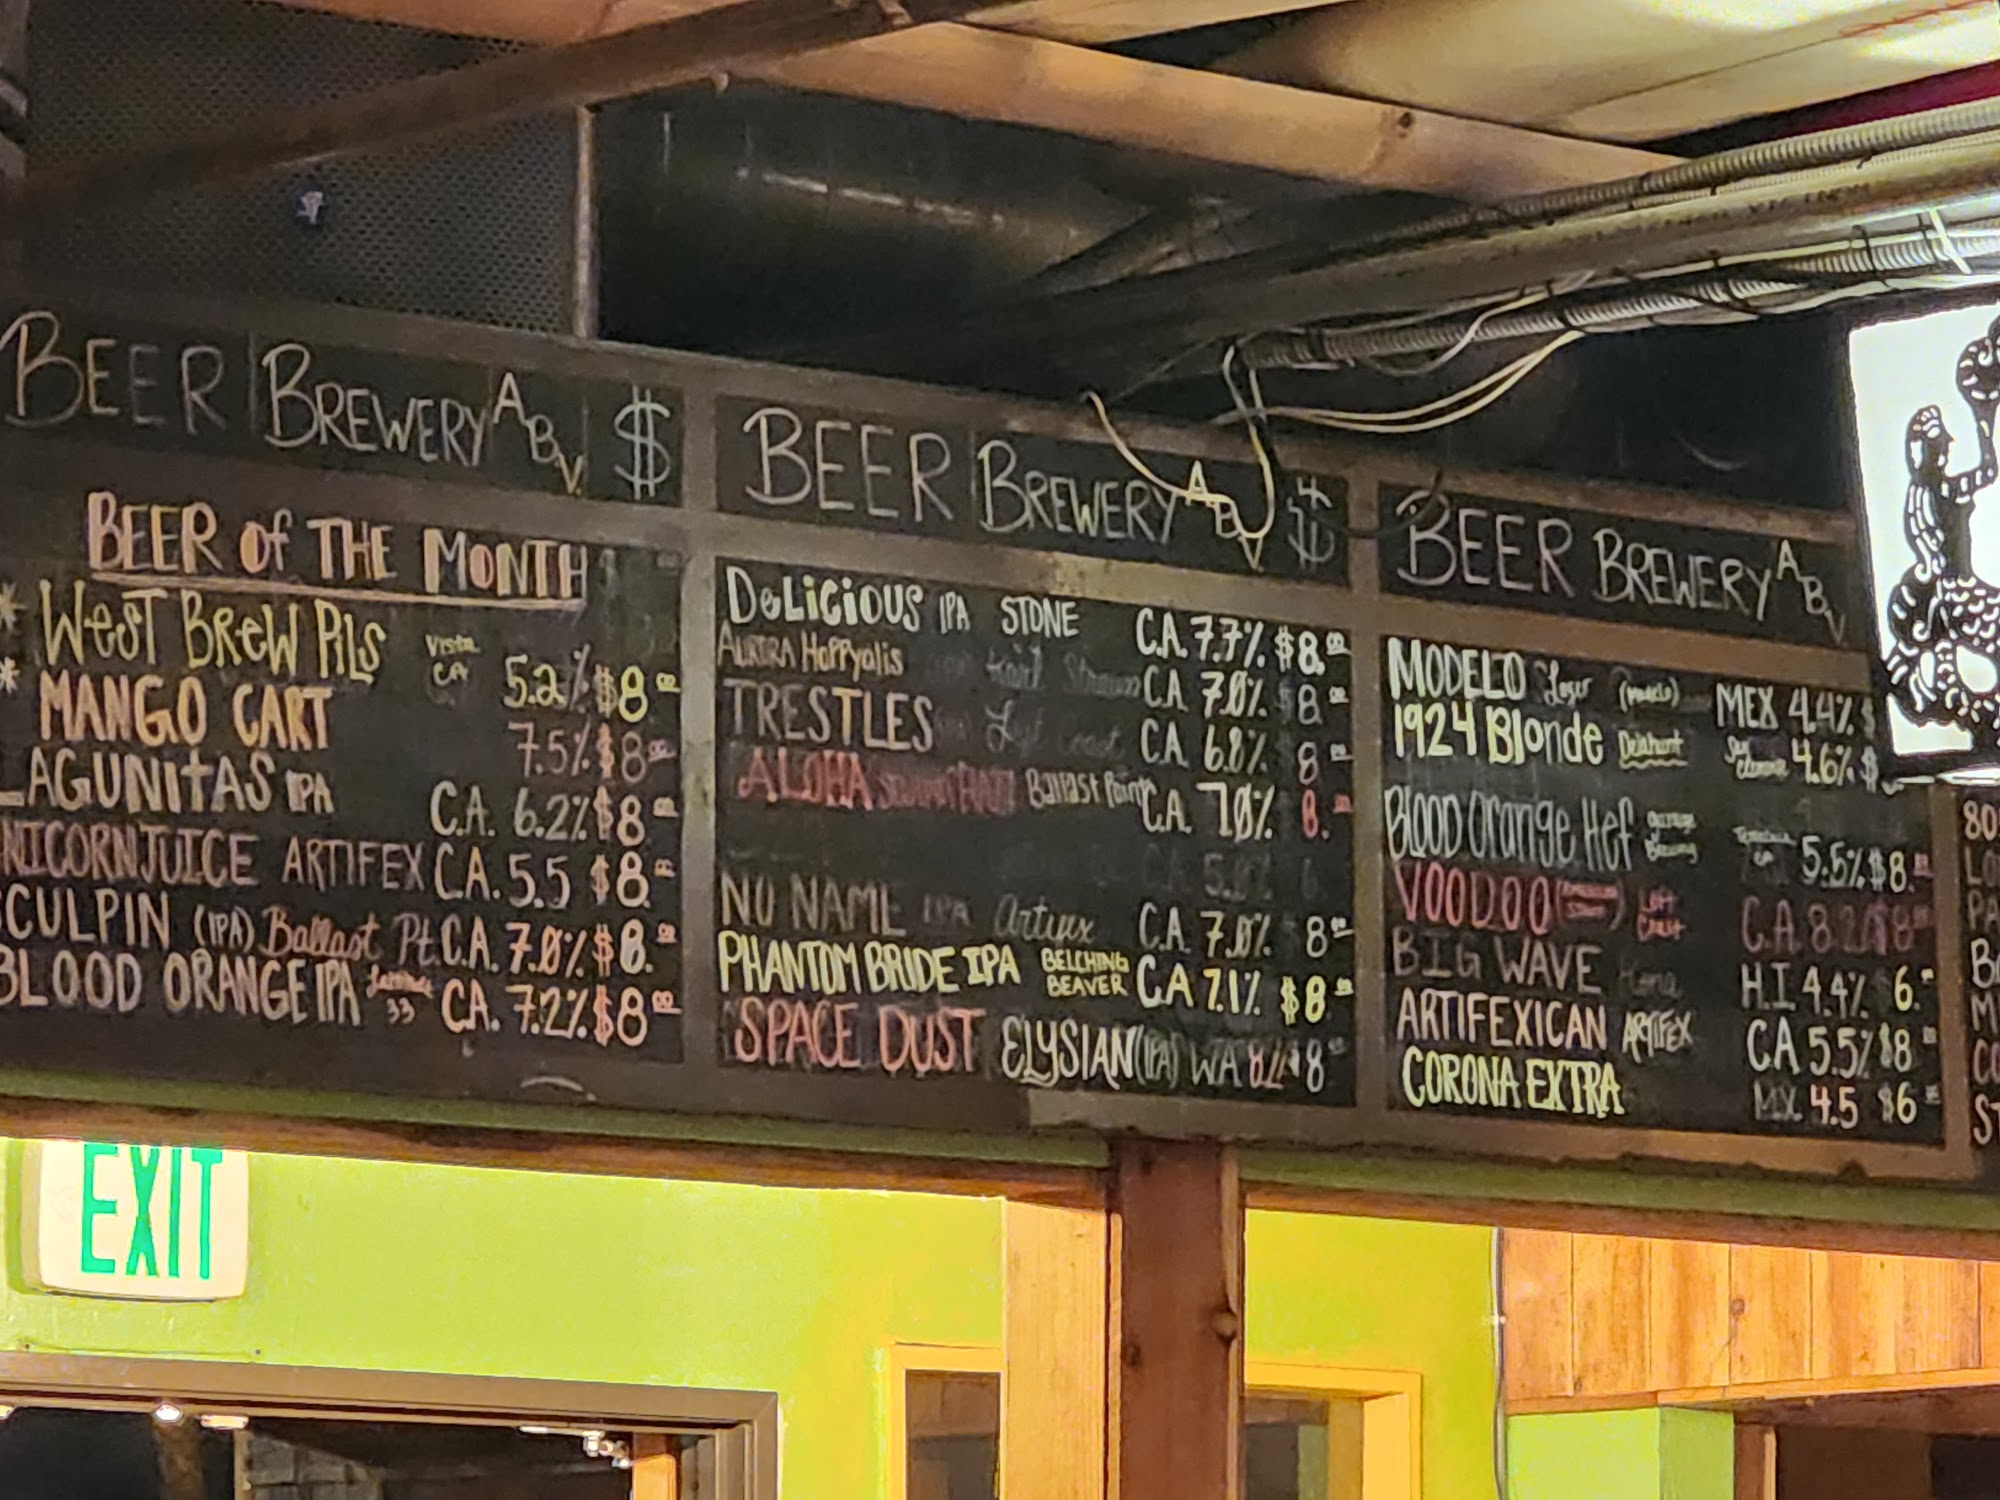 BEER BREWERY ABV $
BEER of THE MONTH
* WEST BREW PILS Vista CA 5.2% $8.00
* MANGO CART 7.5% $8.00
LAGUNITAS IPA C.A. 6.2% $8.00
NICORNJUICE ARTIFEX CA. 5.5 $8.00
SCULPIN (IPA) Ballast Pt. C.A. 7.0% $8.00
BLOOD ORANGE IPA 33 CA. 7.2% $8.00
BEER BREWERY ABV $
DELiCiOUS IPA STONE C.A. 7.7% $8.00
AURORA Hoppyalis Karl Strauss CA 7.0% 8.00
TRESTLES Left Coast CA 6.8% 8.00
ALOHA SCULPIN Ballast Point C.A. 7.0% 8.00
NO NAME IPA Artifex C.A. 7.0% 8.00
PHANTOM BRIDE IPA BELCHING BEAVER C.A 7.1% $8.00
SPACE DUST ELYSIAN (IPA) WA 8.2% 8.00
BEER BREWERY ABV
MODELO Lager (modelo) MEX 4.4% $
1924 Blonde Delahunt San Clemente 4.6% $
BLOOD Orange Hef Brewing CA 5.5% $8.00
VOODOO LEFT COAST C.A. 8.2 $8.00
BIG WAVE Kona H.I 4.4% 6.00
ARTIFEXICAN ARTIFEX CA 5.5% $8.00
CORONA EXTRA MX. 4.5 $6.00
EXIT